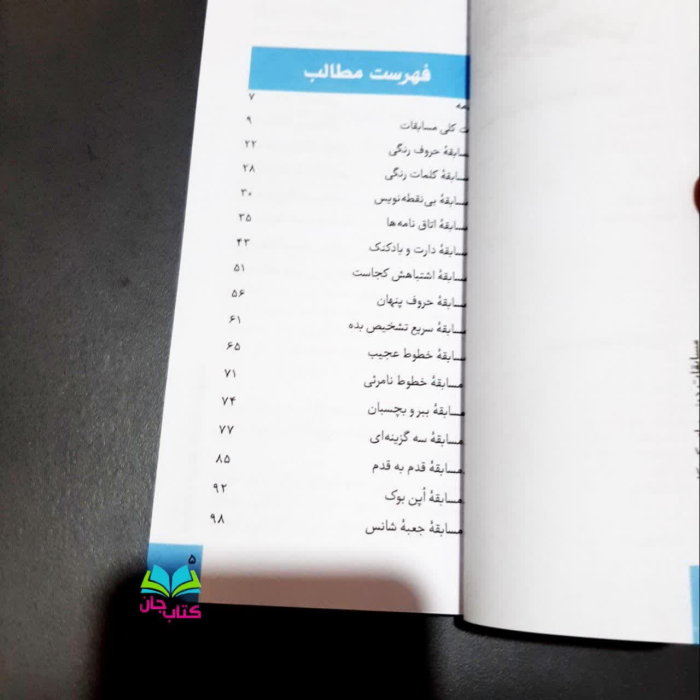 فهرست مطالب
۷
ت کلی مسابقات ۹
مسابقهٔ حروف رنگی ۲۲
مسابقهٔ کلمات رنگی ۲۸
مسابقهٔ بی‌نقطه‌نویس ۳۰
مسابقهٔ اتاق نامه‌ها ۳۵
مسابقهٔ دارت و بادکنک ۴۳
مسابقهٔ اشتباهش کجاست ۵۱
مسابقهٔ حروف پنهان ۵۶
مسابقهٔ سریع تشخیص بده ۶۱
مسابقهٔ خطوط عجیب ۶۵
مسابقهٔ خطوط نامرئی ۷۱
مسابقهٔ ببر و بچسبان ۷۴
مسابقهٔ سه گزینه‌ای ۷۷
مسابقهٔ قدم به قدم ۸۵
مسابقهٔ اُپن بوک ۹۲
مسابقهٔ جعبهٔ شانس ۹۸
۵
کتاب جان